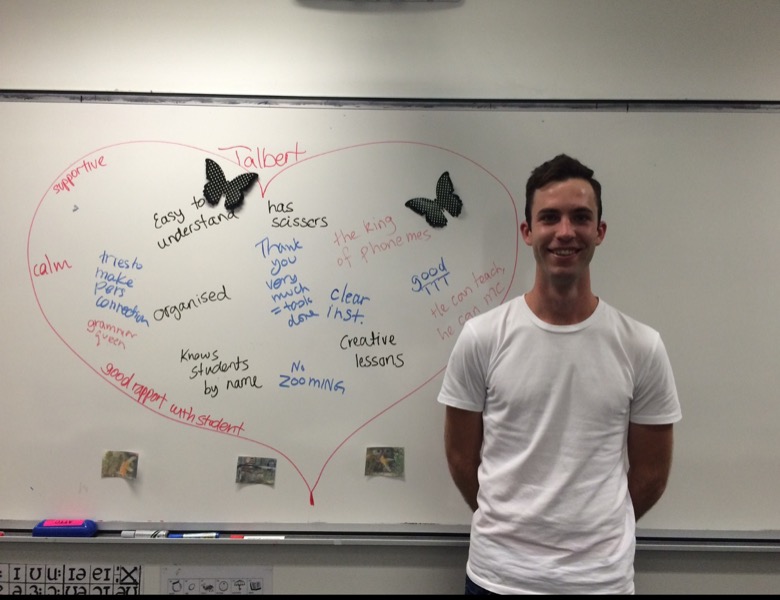 Talbert
supportive
Easy to
understand
has
scissers
the king
of phonemes
calm
tries to
make
pers
connection
organised
Thank
you
very
much
= task
done
clear
inst.
good
TTT
He can teach,
he can MC
grammar
queen
Knows
students
by name
No
ZOOMING
Creative
lessons
good rapport with student
ɪ ʊ uː ɪə eɪ